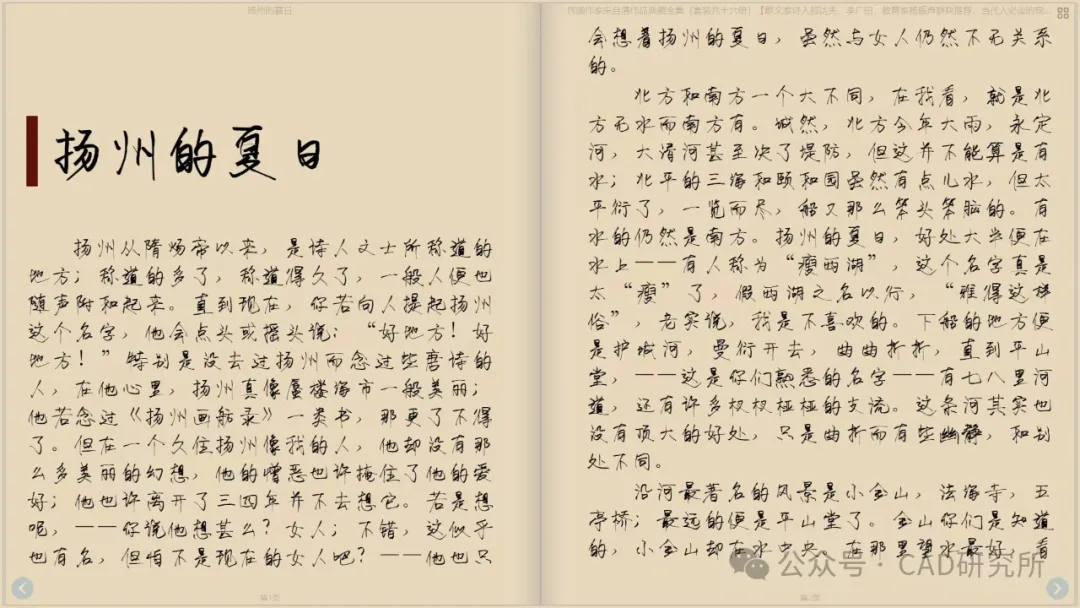 扬州的夏日
扬州的夏日
扬州从隋炀帝以来，是诗人文士所称道的
地方；称道的多了，称道得久了，一般人便也
随声附和起来。直到现在，你若向人提起扬州
这个名字，他会点头或摇头说：“好地方！好
地方！”特别是没去过扬州而念过些唐诗的
人，在他心里，扬州真像蜃楼海市一般美丽；
他若念过《扬州画舫录》一类书，那更了不得
了。但在一个久住扬州像我的人，他却没有那
么多美丽的幻想，他的憎恶也许掩住了他的爱
好；他也许离开了三四年并不去想它。若是想
呢，——你说他想甚么？女人；不错，这似乎
也有名，但怕不是现在的女人吧？——他也只
第1页
会想着扬州的夏日，虽然与女人仍然不无关系
的。
北方和南方一个大不同，在我看，就是北
方无水而南方有。诚然，北方今年大雨，永定
河，大清河甚至决了堤防，但这并不能算是有
水；北平的三海和颐和园虽然有点儿水，但太
平衍了，一览而尽，船又那么笨头笨脑的。有
水的仍然是南方。扬州的夏日，好处大半便在
水上——有人称为“瘦西湖”，这个名字真是
太“瘦”了，假西湖之名以行，“雅得这样
俗”，老实说，我是不喜欢的。下船的地方便
是护城河，曼衍开去，曲曲折折，直到平山
堂，——这是你们熟悉的名字——有七八里河
道，还有许多杈杈桠桠的支流。这条河其实也
没有顶大的好处，只是曲折而有些幽静，和别
处不同。
沿河最著名的风景是小金山，法海寺，五
亭桥；最远的便是平山堂了。金山你们是知道
的，小金山却在水中央。在那里望水最好，看
第2页
公众号·CAD研究所